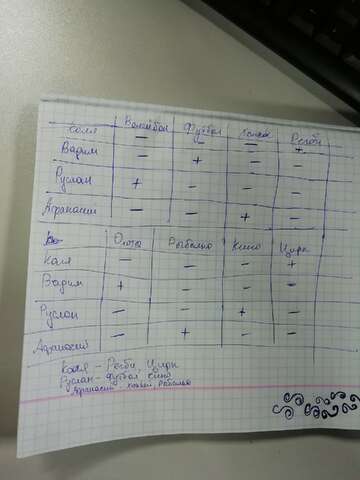 Волейбол Футбол Хоккей Регби
Коля — — — +
Вадим — + — —
Руслан + — — —
Афанасий — — + —
Охота Рыбалка Кино Цирк
Коля — — — +
Вадим + — — —
Руслан — — + —
Афанасий — + — —
Коля - Регби, Цирк
Руслан - Футбол Кино
Афанасий Хоккей, Рыбалка